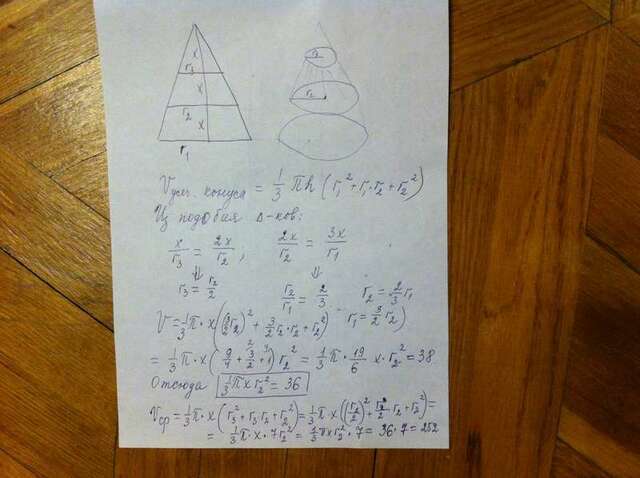 x
r₃
x
r₂
x
r₁
r₃
r₂
Vусеч. конуса = 1/3 πh (r₁² + r₁·r₂ + r₂²)
Из подобия Δ-ков:
x/r₃ = 2x/r₂, 2x/r₂ = 3x/r₁
⇓ ⇓
r₃ = r₂/2 r₂/r₁ = 2/3 r₂ = 2/3 r₁
r₁ = 3/2 r₂)
V = 1/3 π · x ((3/2 r₂)² + 3/2 r₂ · r₂ + r₂²)
= 1/3 π · x (9/4 + 3/2 + 1) r₂² = 1/3 π · 19/6 x · r₂² = 38
Отсюда 1/3 π x r₂² = 36
Vср = 1/3 π · x (r₃² + r₃ r₂ + r₂²) = 1/3 π · x ((r₂/2)² + r₂/2 r₂ + r₂²) =
= 1/3 π · x · 7 r₂² = 1/3 π x r₂² · 7 = 36 · 7 = 252